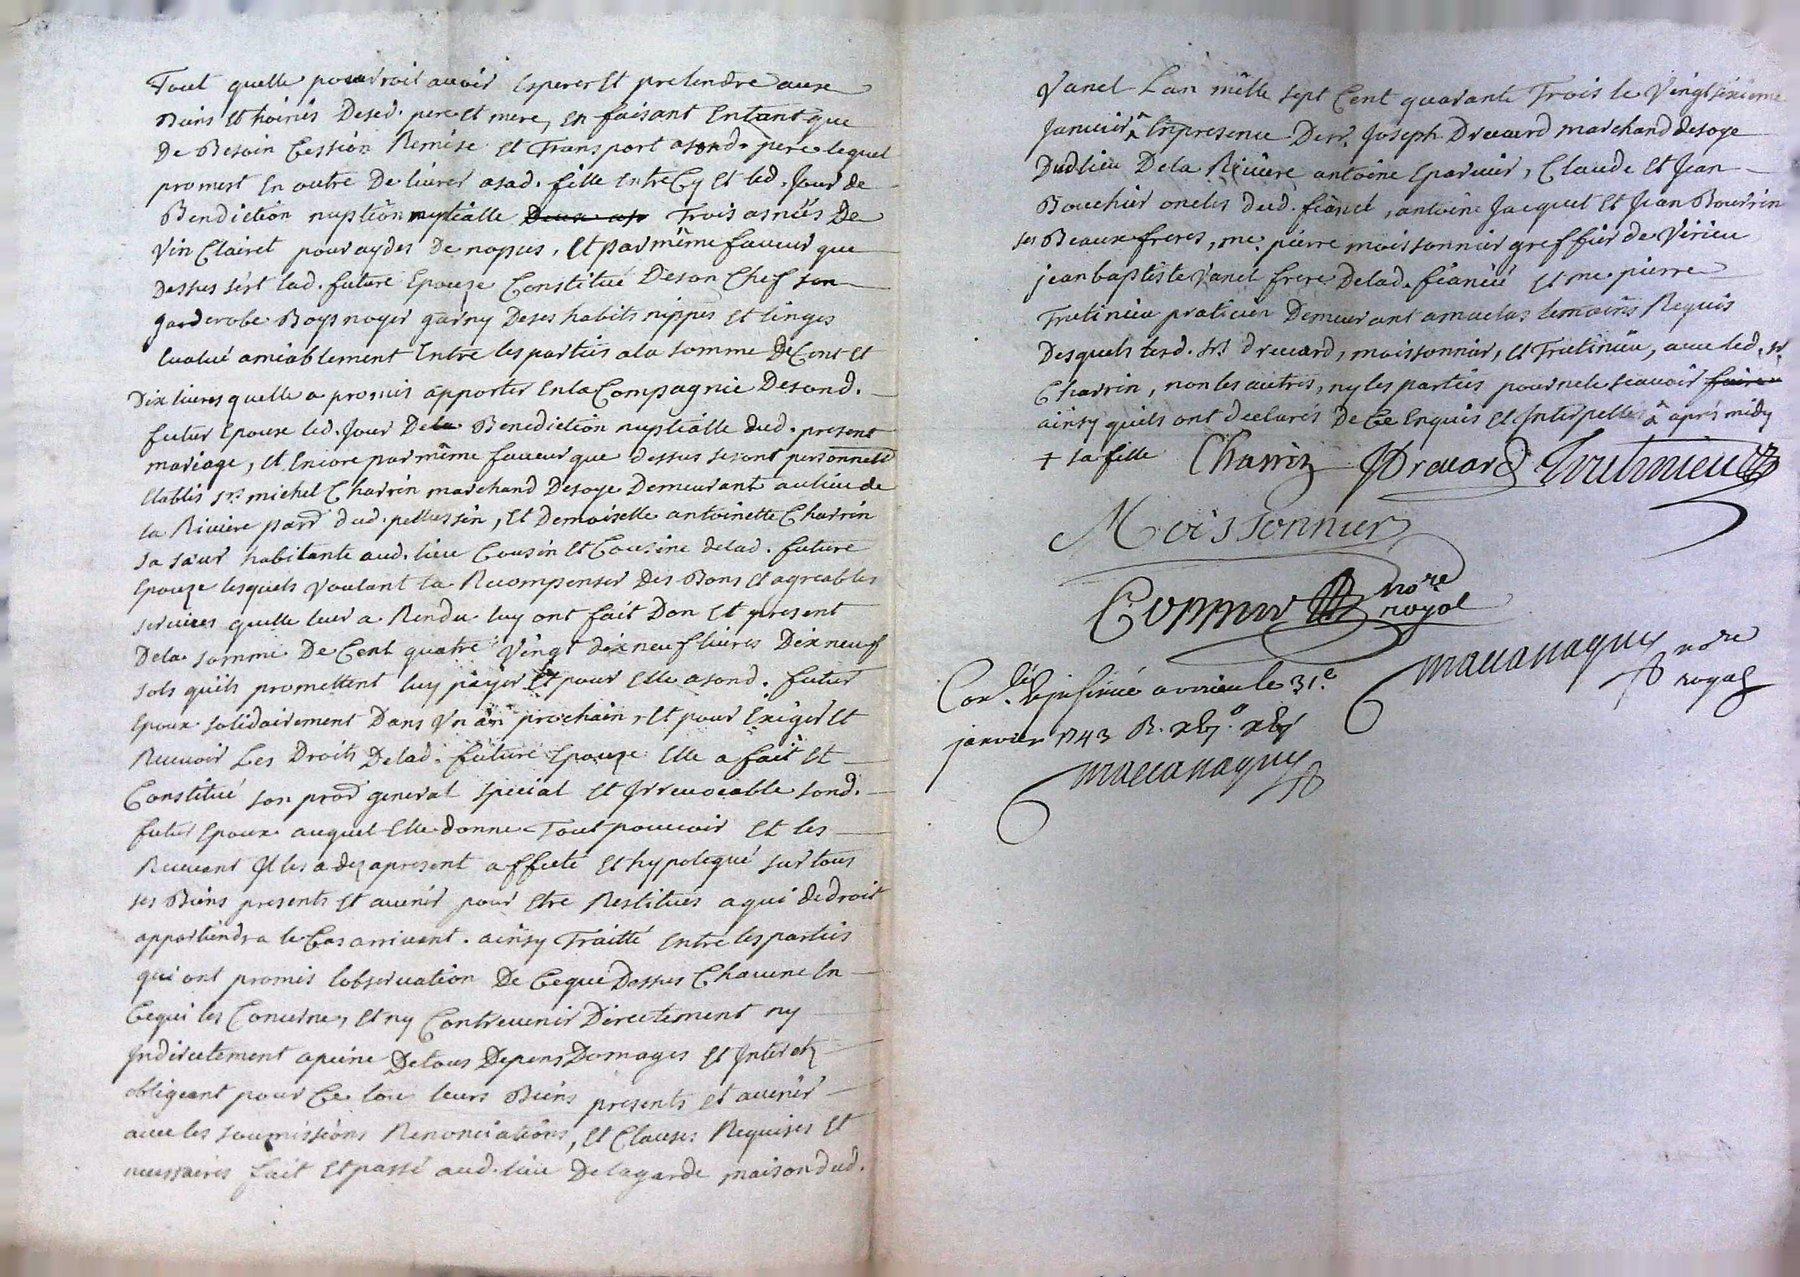 Tout quelle pouvdroit avoir Esperer Et pretendre aux
Biens Et hoiries Desed. pere et mere, En faisant Entant que
De Besoin Cession Remise Et Transport asond. pere lequel
promest En outre De livrer asad. fille Entre Cy Et led. Jour de
Benediction nuptialle Trois asnées De
Vin Clairet pour aydes De nopces, Et par même faveur que
Dessus sést lad. future Epouze Constitué De son Chef son
garderobe Boys noyer garny De ses habits nippes Et linges
Evalué amiablement Entre les parties ala somme De Cent Et
Dix livres quelle a promis apporter En la Compagnie De sond.
futur Epoux led. Jour De la Benediction nuptialle dud. present
mariage, Et Encore par même faveur que dessus seront personnelt
Etablis sr. michel Charrin marchand De soye Demeurant au lieu de
la Riviere parr. dud. pellussin, Et Demoiselle antoinette Charrin
sa sœur habitante aud. lieu Cousin Et Cousine delad. future
Epouze lesquels voulant la Recompenser Des Bons Et agreables
services quelle leur a Rendu luy ont fait Don Et present
Dela somme De Cent quatre vingt dix neuf livres Dix neuf
sols quils promettent luy päyer pour Elle a sond. futur
Epoux solidairement Dans Vn än prochain, Et pour Exiger Et
Recevoir Les Droits Delad. future Epouze Elle a fait Et
Constitué son procr. general special Et Irrevocable sond.
futur Epoux auquel Elle donne Tout pouvoir Et les
Recevant Il les a dez apresent affecté Et hypotequé sur tous
ses Biens presents Et avenir pour Etre Restitués a qui de droit
appartiendra le Cas arrivant. ainsy Traitté Entre les parties
qui ont promis lobservation De Ceque Dessus Chacune En
Cequi les Concerne, Et ny Contrevenir Directement ny
Indirectement a peine De tous Depens Domages Et Interetz
obligeant pour Ce tous leurs Biens presents Et avenir
avec les soumissions Renonciations, Et Clauses Requises Et
necessaires fait Et passé aud. lieu De lagarde maison dud.
Vanel Lan mille sept Cent quarante Trois le Vingt sixieme
Janvier ^ En presence De sr. Joseph Drevard marchand de soye
Dudlieu Dela Riviere antoine Eparvier, Claude Et Jean
Bouchier oncles dud. fiancé, antoine Jacquet Et Jean Bourrin
ses Beaux freres, me. pierre moissonnier greffier de Virieu
jean baptiste Vanel frere Delad. fiancée Et me. pierre
Trutinieu praticien Demeurant a maclas temoins Requis
Desquels lesd. srs. drevard, moissonnier, Et Trutinieu, avec led. sr.
Charrin, non les autres, ny les parties pour ne le scavoir faire
ainsy quils ont declarés De Ce Enquis Et Interpellés ^ après midy
+ sa fille Charrin JDrevard Trutinieu
Moissonnier
Coppier nore royal
Conlé. & insinué a virieu le 31.e
janvier 1743 R.
Maccanaguy nore royal
Maccanaguy